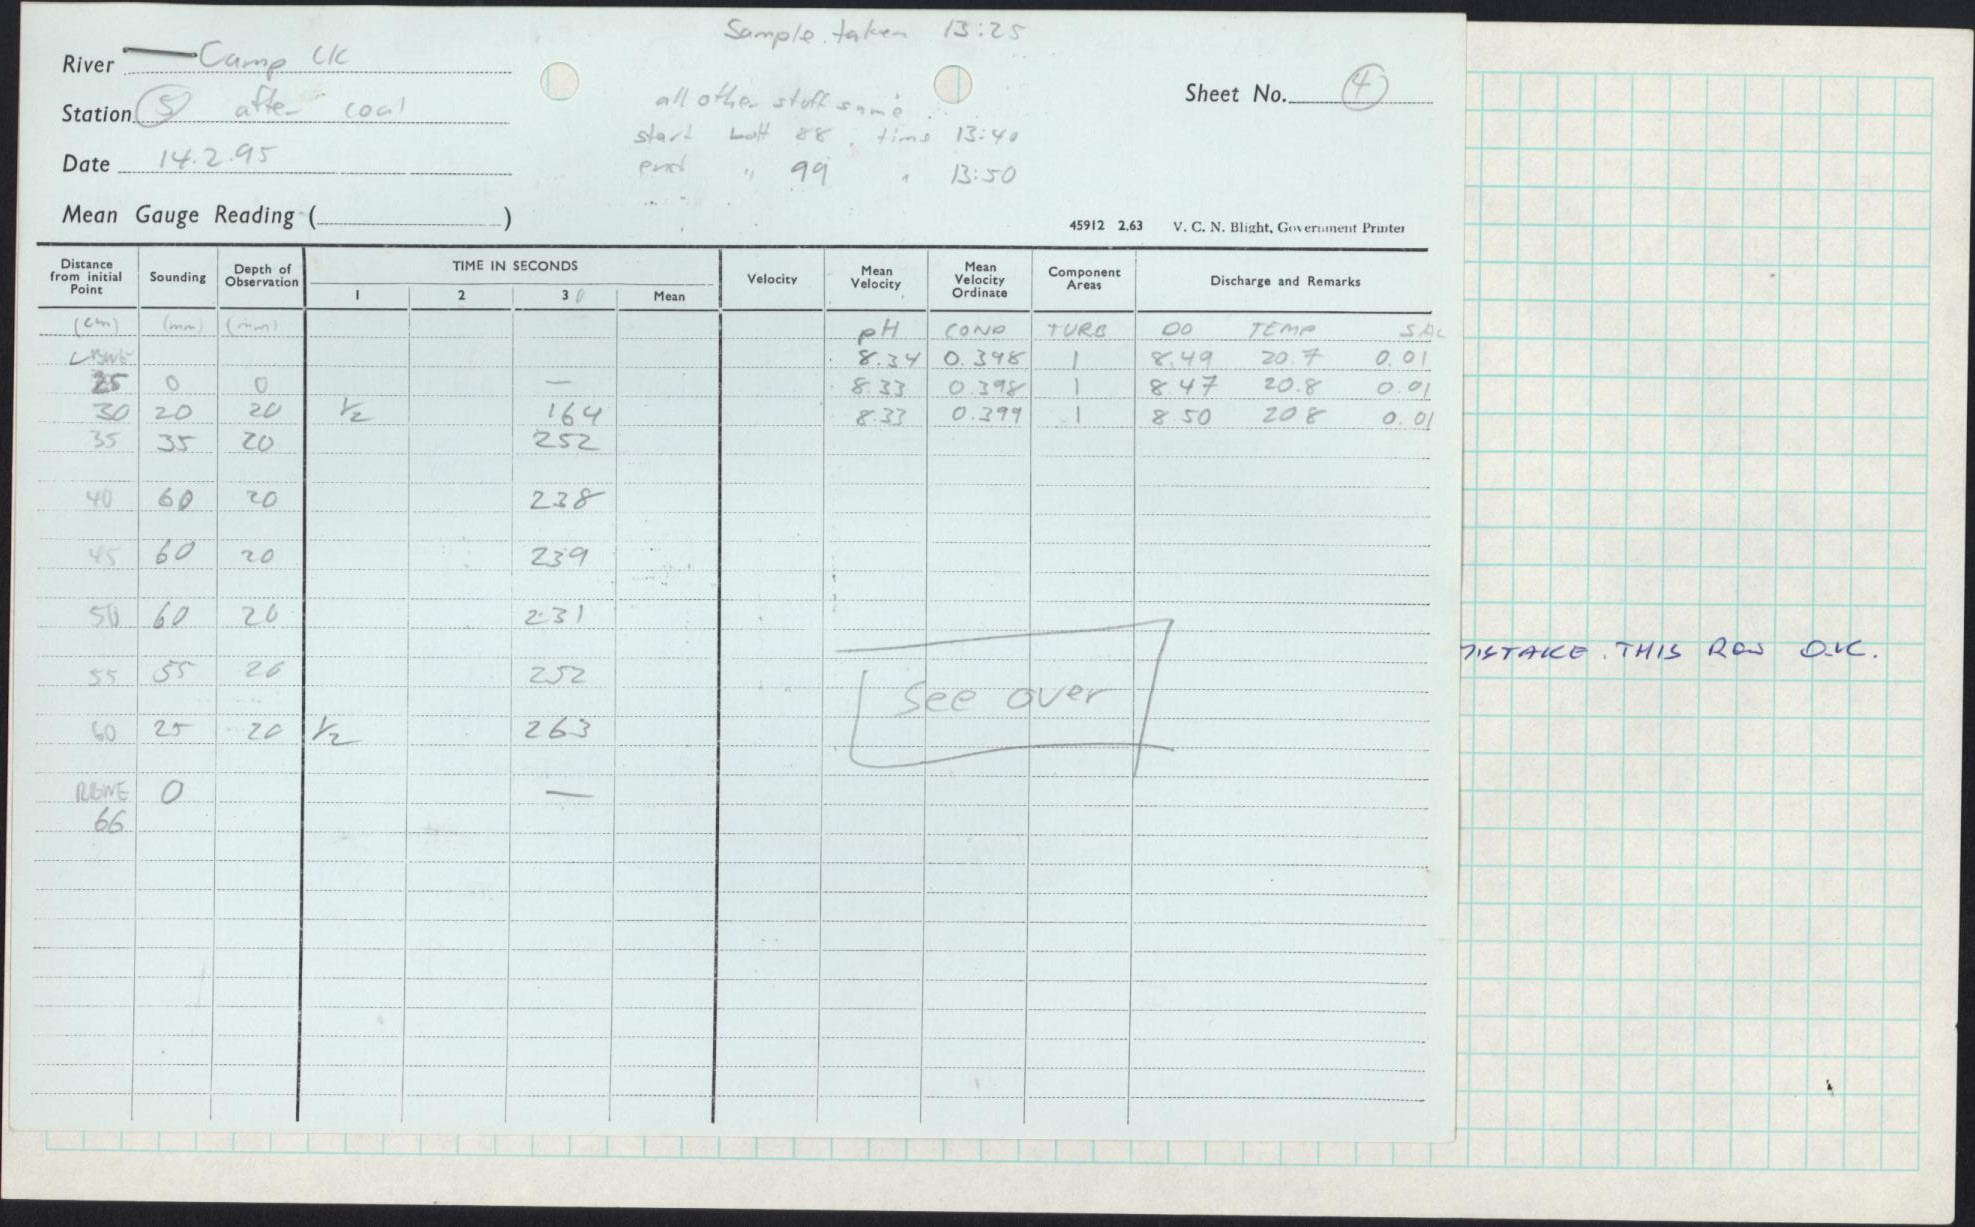 Sample taken 13:25
River Camp Ck
Station 5 after coal
all other stuff same
Sheet No. 4
start batt 88 time 13:40
Date 14.2.95
end " 99 " 13:50
Mean Gauge Reading ( )
45912 2.63 V. C. N. Blight, Government Printer
Distance from initial Point Sounding Depth of Observation TIME IN SECONDS 1 2 3 Mean Velocity Mean Velocity Mean Velocity Ordinate Component Areas Discharge and Remarks
(cm) (mm) (mm) pH COND TURB DO TEMP SAL
LBWE 8.34 0.398 1 8.49 20.7 0.01
25 0 0 — 8.33 0.398 1 8.47 20.8 0.01
30 20 20 1/2 164 8.33 0.399 1 8.50 20.8 0.01
35 35 20 252
40 60 20 238
45 60 20 239
50 60 20 231
MISTAKE. THIS ROW O.K.
55 55 20 252
See over
60 25 20 1/2 263
RBWE 0 —
66